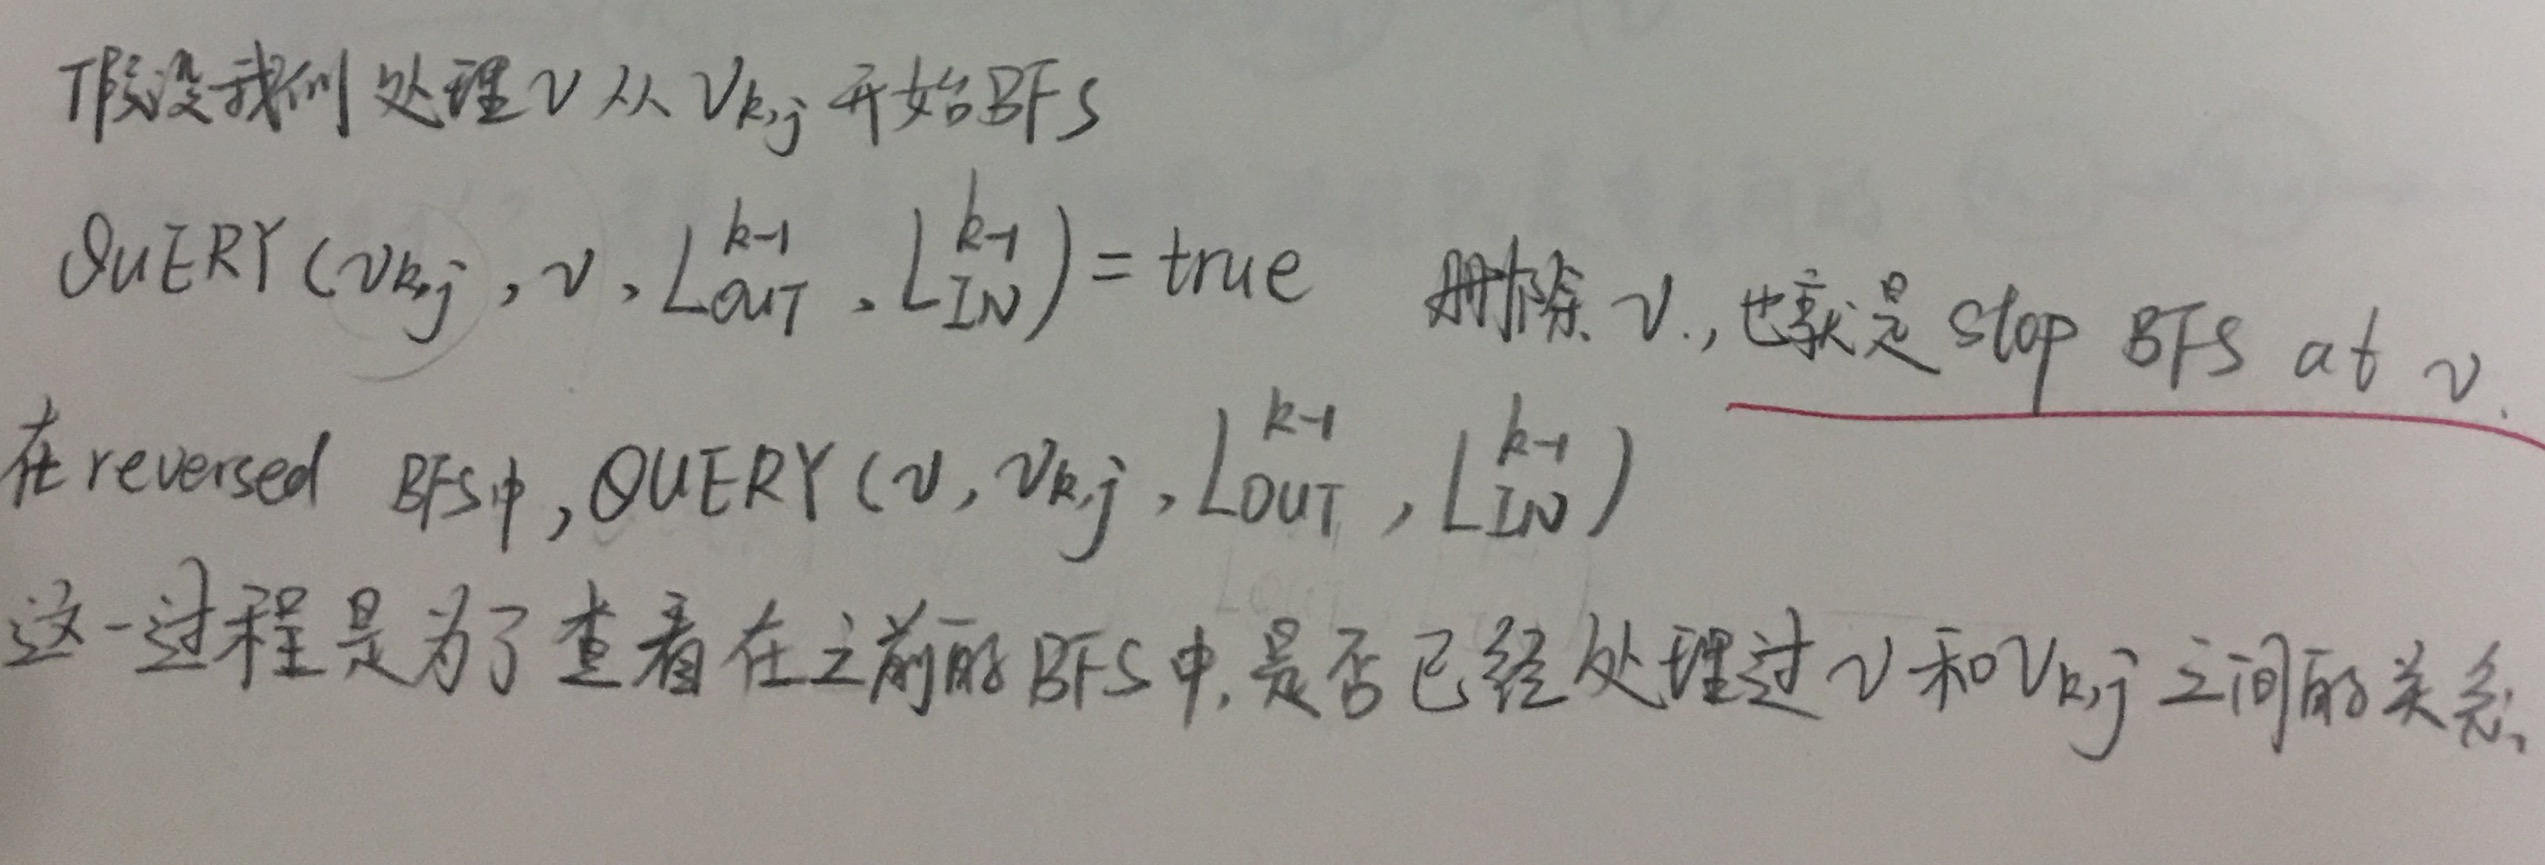 假设我们处理v从v_{k,j}开始BFS
QUERY(v_{k,j}, v, L_{OUT}^{k-1}, L_{IN}^{k-1}) = true 删除v.,也就是stop BFS at v.
在reversed BFS中,QUERY(v, v_{k,j}, L_{OUT}^{k-1}, L_{IN}^{k-1})
这一过程是为了查看在之前的BFS中,是否已经处理过v和v_{k,j}之间的关系、